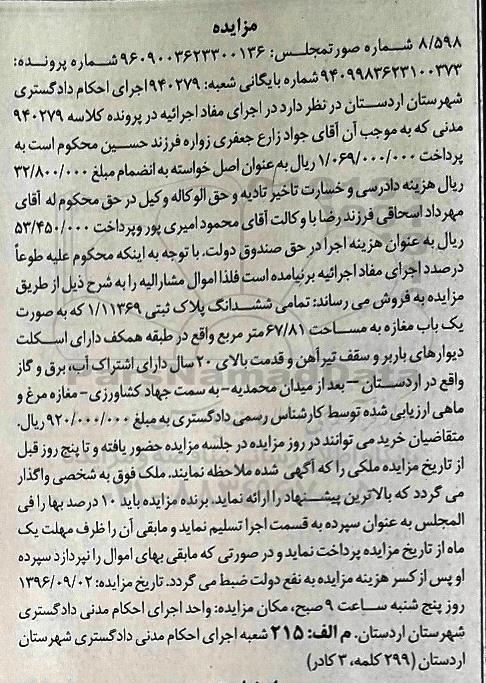 مزایده
۸/۵۹۸ شماره صورتمجلس: ۹۶۰۹۰۰۳۶۲۳۳۰۰۱۳۶ شماره پرونده:
۹۴۰۹۹۸۳۶۲۳۱۰۰۳۷۳ شماره بایگانی شعبه: ۹۴۰۲۷۹ اجرای احکام دادگستری
شهرستان اردستان در نظر دارد در اجرای مفاد اجرائیه در پرونده کلاسه ۹۴۰۲۷۹
مدنی که به موجب آن آقای جواد زارع جعفری زواره فرزند حسین محکوم است به
پرداخت ۱/۰۶۹/۰۰۰/۰۰۰ ریال به عنوان اصل خواسته به انضمام مبلغ ۳۲/۸۰۰/۰۰۰
ریال هزینه دادرسی و خسارت تاخیر تادیه و حق الوکاله وکیل در حق محکوم له آقای
مهرداد اسحاقی فرزند رضا با وکالت آقای محمود امیری پور وپرداخت ۵۳/۴۵۰/۰۰۰
ریال به عنوان هزینه اجرا در حق صندوق دولت. با توجه به اینکه محکوم علیه طوعاً
درصدد اجرای مفاد اجرائیه برنیامده است فلذا اموال مشارالیه را به شرح ذیل از طریق
مزایده به فروش می رساند: تمامی ششدانگ پلاک ثبتی ۱/۱۱۳۶۹ که به صورت
یک باب مغازه به مساحت ۶۷/۸۱ متر مربع واقع در طبقه همکف دارای اسکلت
دیوارهای باربر و سقف تیرآهن و قدمت بالای ۲۰ سال دارای اشتراک آب، برق و گاز
واقع در اردستان – بعد از میدان محمدیه- به سمت جهاد کشاورزی- مغازه مرغ و
ماهی ارزیابی شده توسط کارشناس رسمی دادگستری به مبلغ ۹۲۰/۰۰۰/۰۰۰ ریال.
متقاضیان خرید می توانند در روز مزایده در جلسه مزایده حضور یافته و تا پنج روز قبل
از تاریخ مزایده ملکی را که آگهی شده ملاحظه نمایند. ملک فوق به شخصی واگذار
می گردد که بالاترین پیشنهاد را ارائه نماید. برنده مزایده باید ۱۰ درصد بها را فی
المجلس به عنوان سپرده به قسمت اجرا تسلیم نماید و مابقی آن را ظرف مهلت یک
ماه از تاریخ مزایده پرداخت نماید و در صورتی که مابقی بهای اموال را نپردازد سپرده
او پس از کسر هزینه مزایده به نفع دولت ضبط می گردد. تاریخ مزایده: ۱۳۹۶/۰۹/۰۲
روز پنج شنبه ساعت ۹ صبح، مکان مزایده: واحد اجرای احکام مدنی دادگستری
شهرستان اردستان. م الف: ۲۱۵ شعبه اجرای احکام مدنی دادگستری شهرستان
اردستان (۲۹۹ کلمه، ۳ کادر)